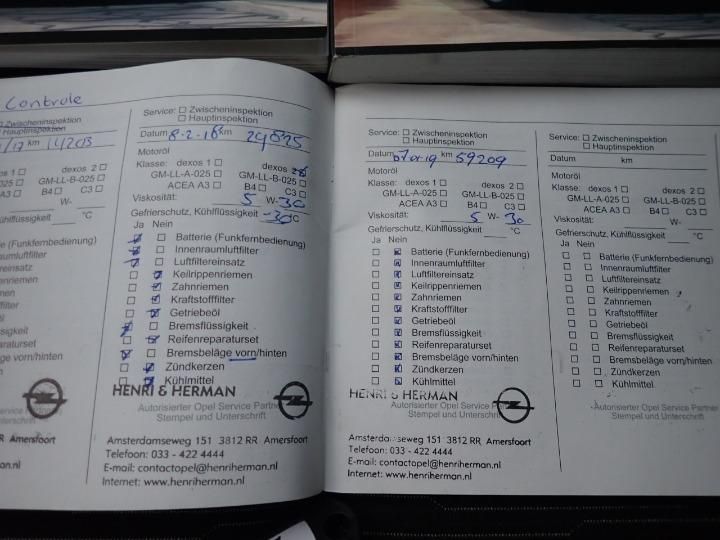 Controle
Hauptinspektion
km
GM-LL-B-025
B4 C3
W-
°C
Service: Zwischeninspektion
Hauptinspektion
Datum 8-2-18 km
Motoröl
Klasse: dexos 1 dexos 2
GM-LL-A-025 GM-LL-B-025
ACEA A3 B4 C3
Viskosität: 5 W- 30
Gefrierschutz, Kühlflüssigkeit -30°C
Ja Nein
Batterie (Funkfernbedienung)
Innenraumluftfilter
Luftfiltereinsatz
Keilrippenriemen
Zahnriemen
Kraftstofffilter
Getriebeöl
Bremsflüssigkeit
Reifenreparaturset
Bremsbeläge vorn/hinten
Zündkerzen
Kühlmittel
HENRI & HERMAN
Autorisierter Opel Service Partner
Stempel und Unterschrift
Amsterdamseweg 151 3812 RR Amersfoort
Telefoon: 033 - 422 4444
E-mail: contactopel@henriherman.nl
Internet: www.henriherman.nl
Service: Zwischeninspektion
Hauptinspektion
Datum km 59209
Motoröl
Klasse: dexos 1 dexos 2
GM-LL-A-025 GM-LL-B-025
ACEA A3 B4 C3
Viskosität: 5 W- 30
Gefrierschutz, Kühlflüssigkeit °C
Ja Nein
Batterie (Funkfernbedienung)
Innenraumluftfilter
Luftfiltereinsatz
Keilrippenriemen
Zahnriemen
Kraftstofffilter
Getriebeöl
Bremsflüssigkeit
Reifenreparaturset
Bremsbeläge vorn/hinten
Zündkerzen
Kühlmittel
HENRI & HERMAN
Autorisierter Opel Service
Stempel und Unterschrift
Amsterdamseweg 151 3812 RR Amersfoort
Telefoon: 033 - 422 4444
E-mail: contactopel@henriherman.nl
Internet: www.henriherman.nl
Service: Zwischeninspektion
Hauptinspektion
Datum km
Motoröl
Klasse: dexos 1 dexos 2
GM-LL-A-025 GM-LL-B-025
ACEA A3 B4 C3
Viskosität: W-
Gefrierschutz, Kühlflüssigkeit °C
Ja Nein
Batterie (Funkfernbedienung)
Innenraumluftfilter
Luftfiltereinsatz
Keilrippenriemen
Zahnriemen
Kraftstofffilter
Getriebeöl
Bremsflüssigkeit
Reifenreparaturset
Bremsbeläge vorn/hinten
Zündkerzen
Kühlmittel
Autorisierter Opel Service Partner
Stempel und Unterschrift